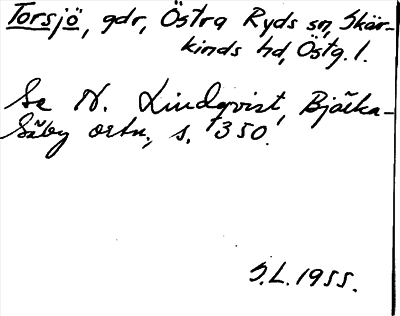 Torsjö, gdr, Östra Ryds sn, Skär-
kinds hd, Östg. l.
Se N. Lindqvist, Bjärka-
Säby ortn., s. 350.
S.L. 1955.